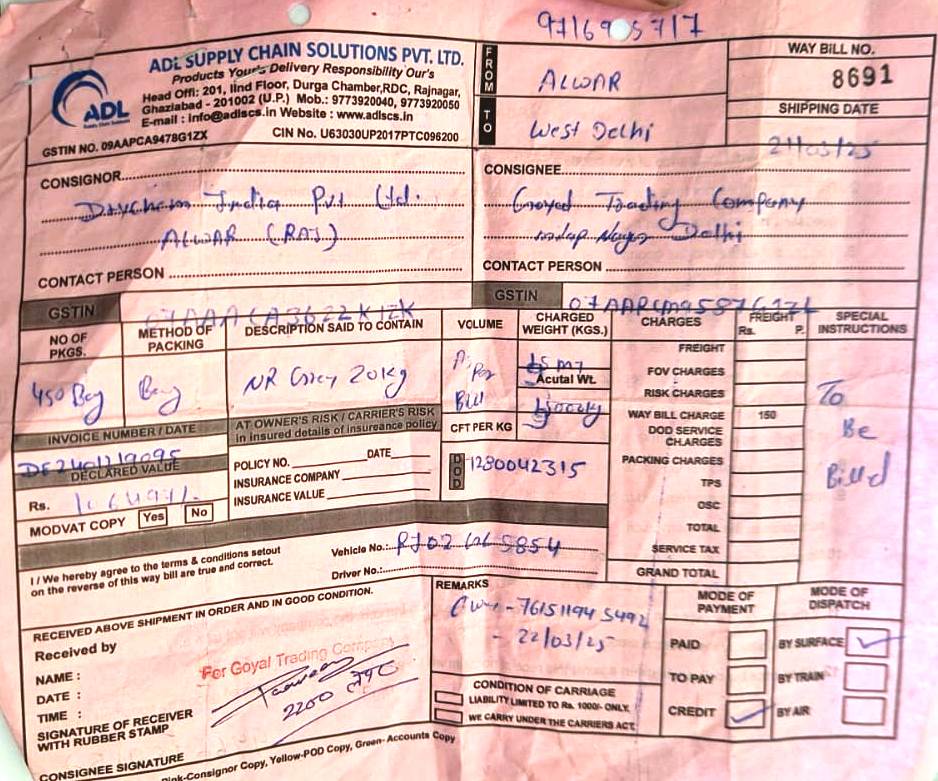 ADL SUPPLY CHAIN SOLUTIONS PVT. LTD.
Products Your's Delivery Responsibility Our's
Head Offi: 201, IInd Floor, Durga Chamber,RDC, Rajnagar,
Ghaziabad - 201002 (U.P.) Mob.: 9773920040, 9773920050
E-mail : info@adlscs.in Website : www.adlscs.in
ADL
GSTIN NO. 09AAPCA9478G1ZX
CIN No. U63030UP2017PTC096200
FROM
ALWAR
TO
West Delhi
WAY BILL NO.
8691
SHIPPING DATE
21/03/25
CONSIGNOR
India Pvt Ltd.
ALWAR (RAJ)
CONTACT PERSON
CONSIGNEE
Goyal Trading Company
Delhi
CONTACT PERSON
GSTIN
GSTIN
NO OF PKGS.
METHOD OF PACKING
DESCRIPTION SAID TO CONTAIN
VOLUME
CHARGED WEIGHT (KGS.)
CHARGES
FREIGHT
Rs. P.
SPECIAL INSTRUCTIONS
450 Bag
Bag
NR Grey 20kg
Per
Bill
Acutal Wt.
CFT PER KG
FREIGHT
FOV CHARGES
RISK CHARGES
WAY BILL CHARGE 150
DOD SERVICE CHARGES
PACKING CHARGES
TPS
OSC
TOTAL
SERVICE TAX
GRAND TOTAL
To
Be
Billed
INVOICE NUMBER / DATE
DECLARED VALUE
Rs.
MODVAT COPY Yes No
AT OWNER'S RISK / CARRIER'S RISK
in insured details of insureance policy
POLICY NO. DATE
INSURANCE COMPANY
INSURANCE VALUE
DOD
1280042315
I / We hereby agree to the terms & conditions setout
on the reverse of this way bill are true and correct.
Vehicle No.:
Driver No.:
RECEIVED ABOVE SHIPMENT IN ORDER AND IN GOOD CONDITION.
Received by
NAME :
DATE :
TIME :
SIGNATURE OF RECEIVER
WITH RUBBER STAMP
CONSIGNEE SIGNATURE
For Goyal Trading Company
REMARKS
- 22/03/25
CONDITION OF CARRIAGE
LIABILITY LIMITED TO Rs. 1000/- ONLY.
WE CARRY UNDER THE CARRIERS ACT.
MODE OF PAYMENT
PAID
TO PAY
CREDIT
MODE OF DISPATCH
BY SURFACE
BY TRAIN
BY AIR
-Consignor Copy, Yellow-POD Copy, Green- Accounts Copy